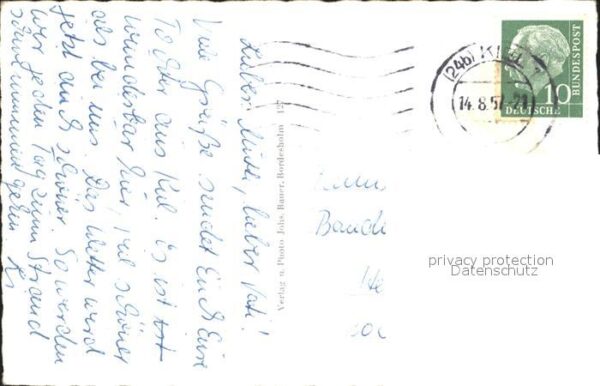 Liebe Mutti, lieber Vati!
Viele Grüße sendet Euch Eure
Tochter aus Kiel. Es ist
wunderbar hier, viel schöner
als bei uns. Das Wetter wird
jetzt auch schöner. So werden
wir jeden Tag zum Strand
schwimmen gehen
Verlag u. Photo Johs. Bauer, Bordesholm 157
(24b) KIEL 1
14.8.57-21
10
DEUTSCHE
BUNDESPOST
privacy protection
Datenschutz